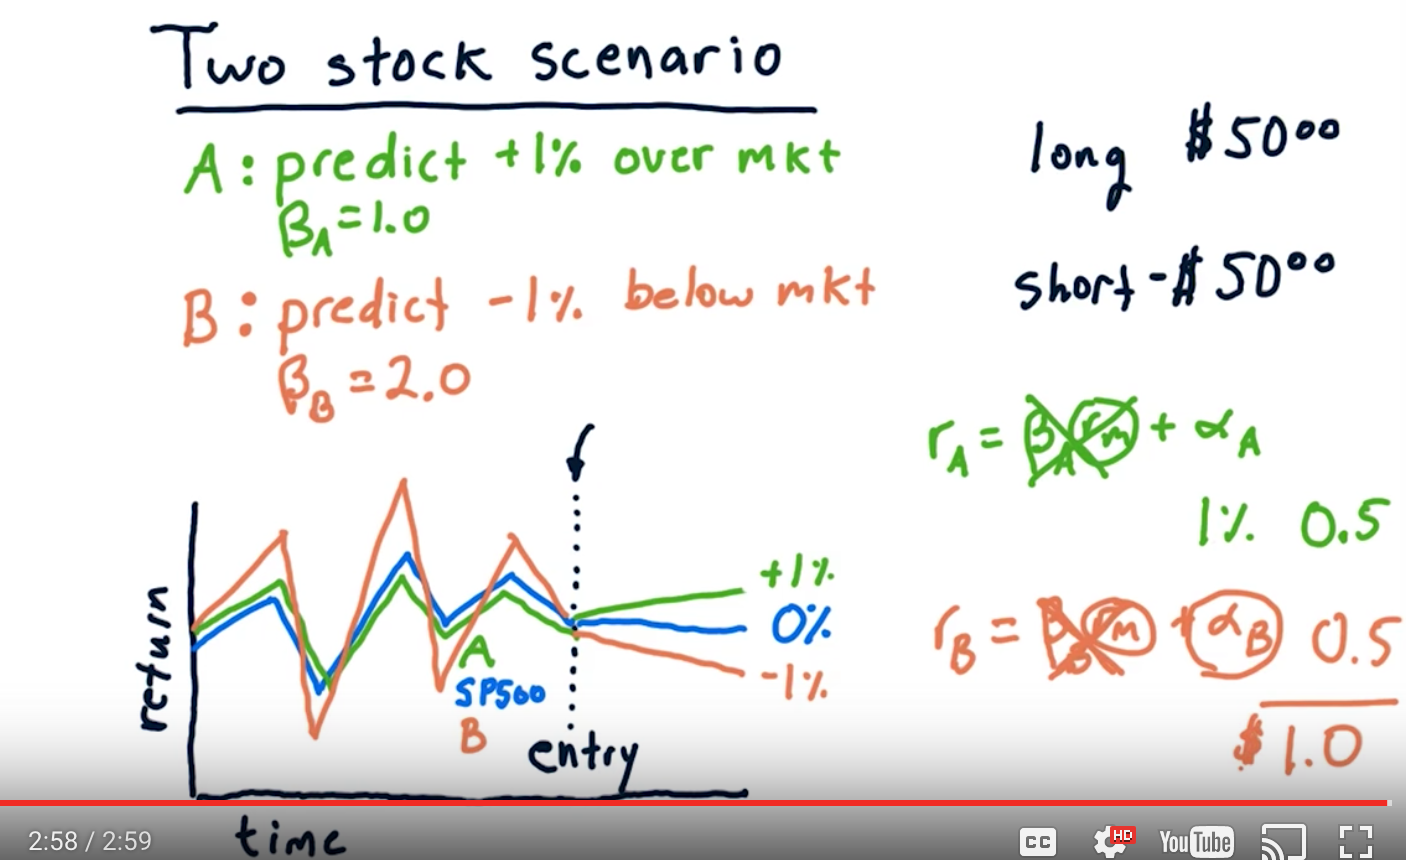 Two stock scenario
A: predict +1% over mkt
βA=1.0
B: predict -1% below mkt
βB=2.0
long $50⁰⁰
short -$50⁰⁰
rA = βA rm + αA
1% 0.5
rB = βB rm + αB 0.5
$1.0
+1%
0%
-1%
A
SP500
B
entry
return
time
2:58 / 2:59
CC
HD
YouTube